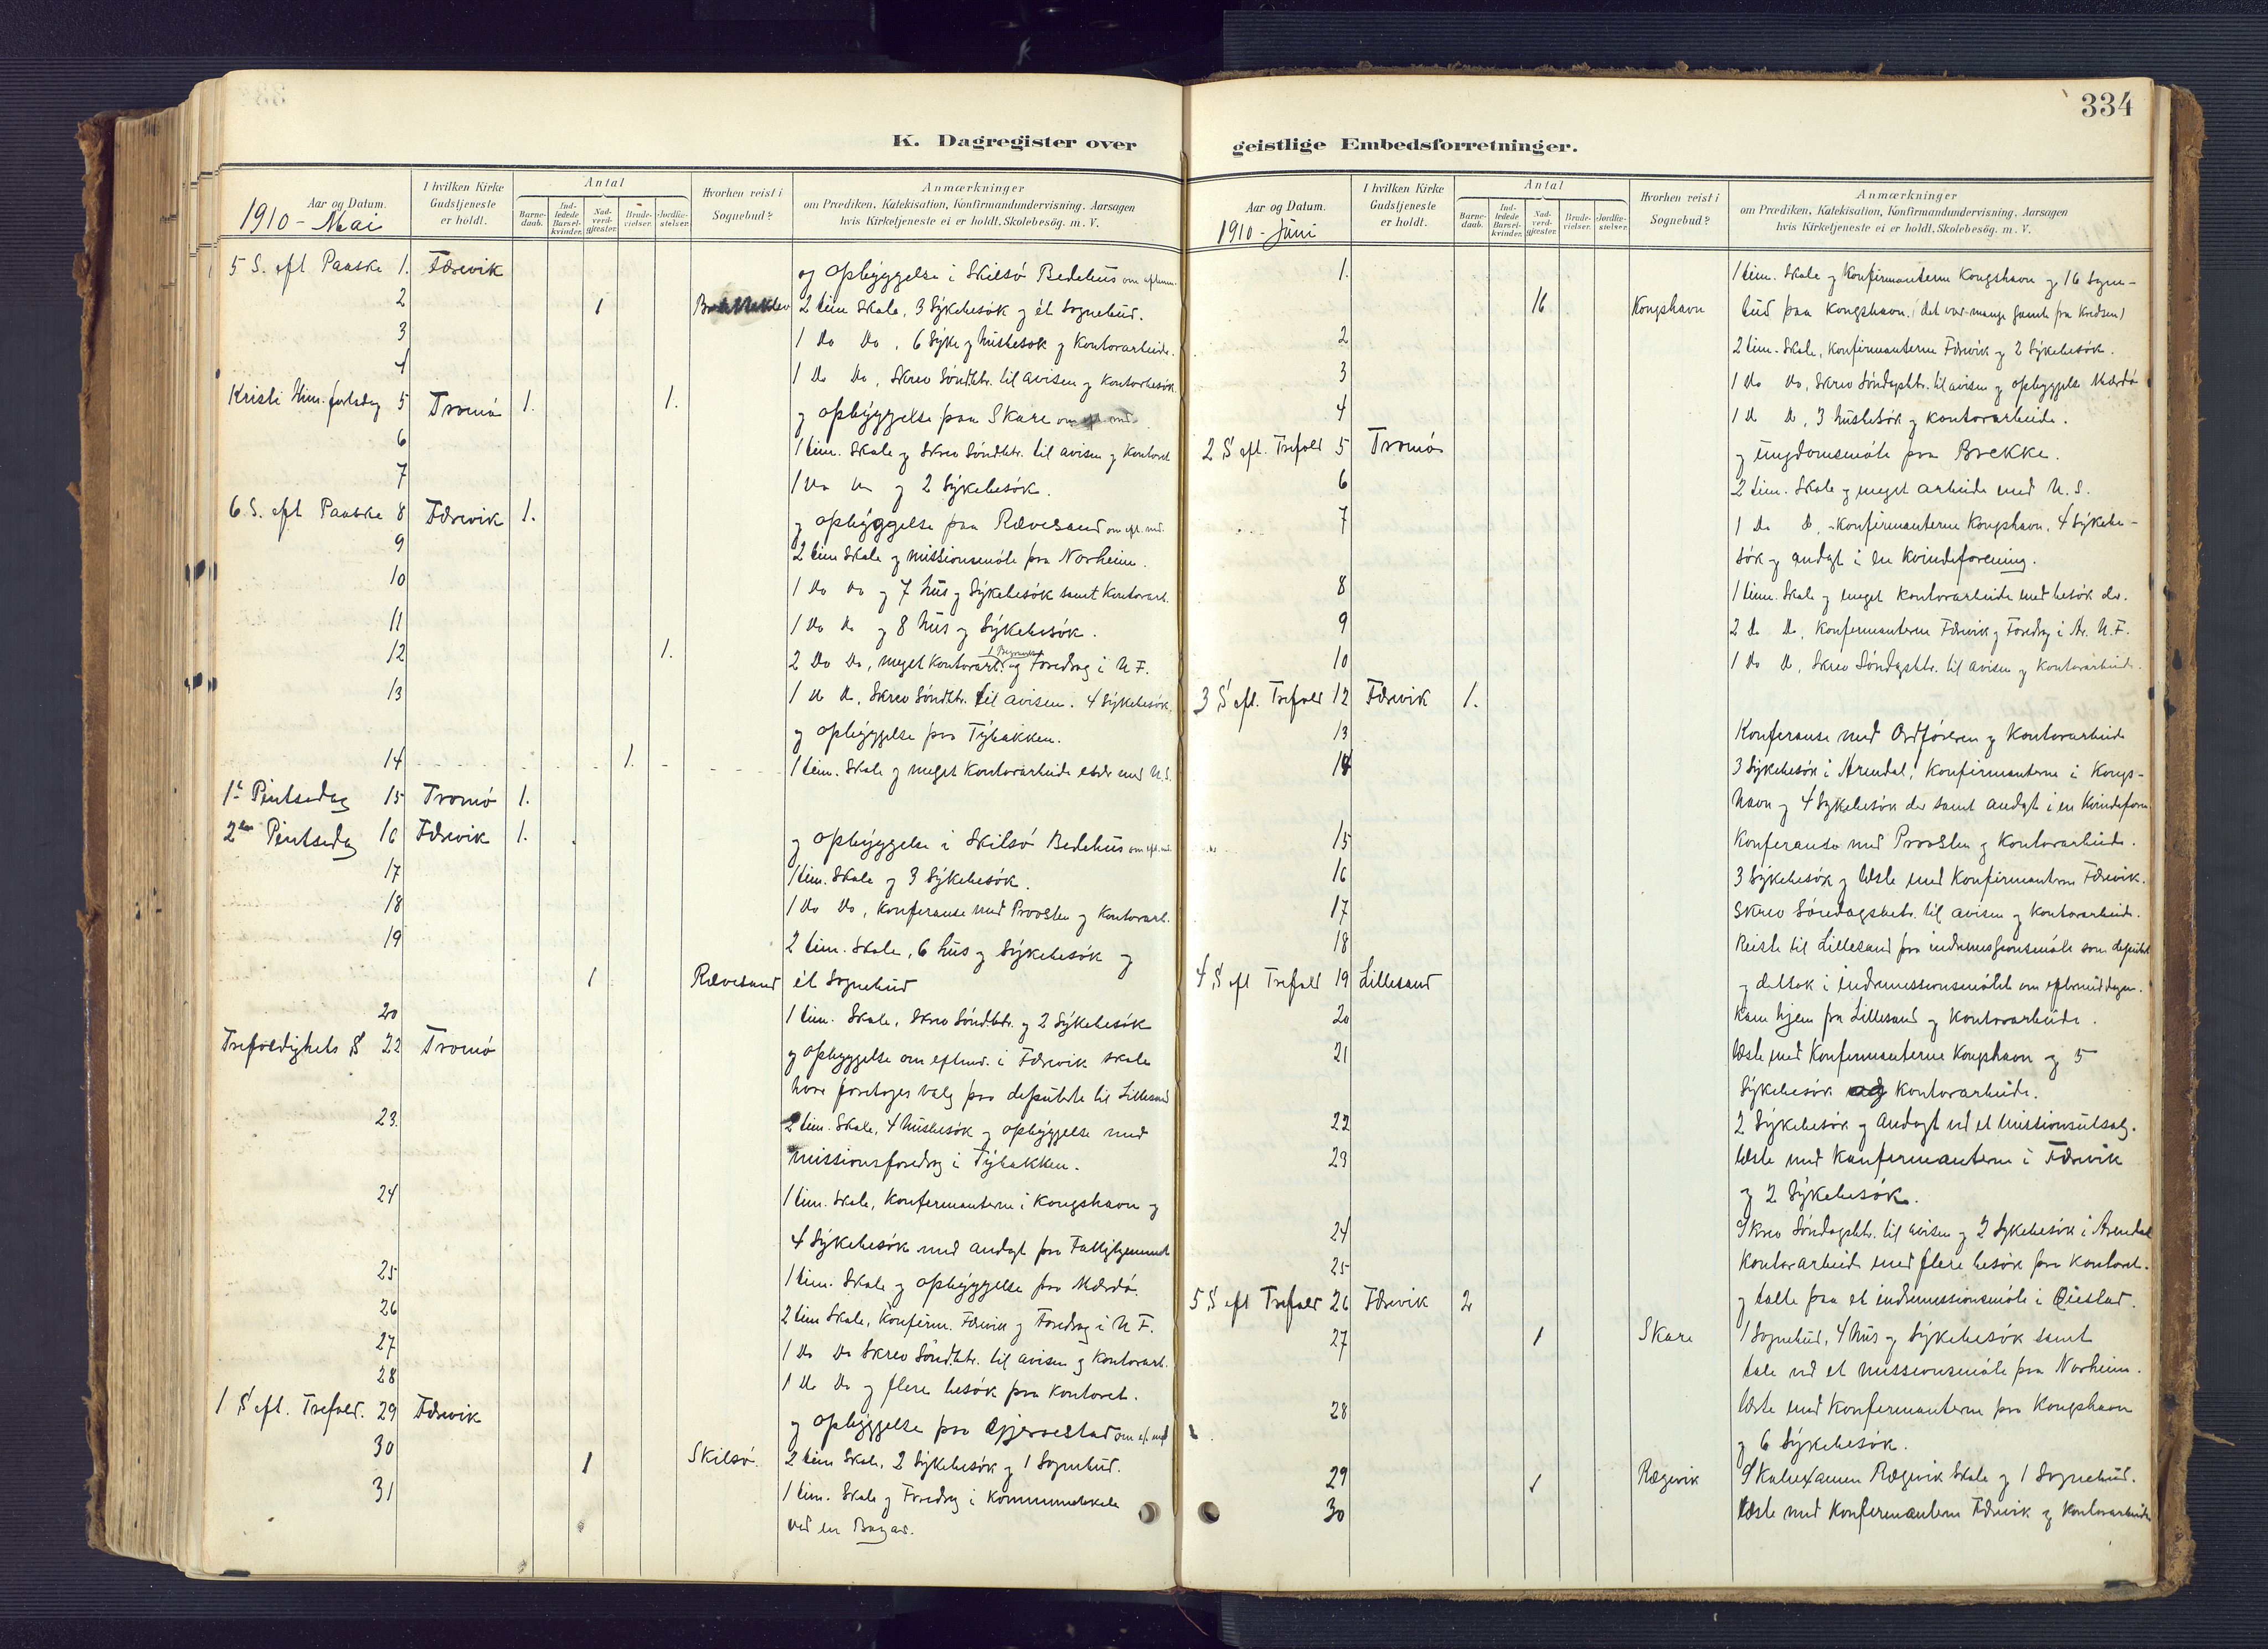 334
K. Dagregister over
geistlige Embedsforretninger.
Aar og Datum.
1910 - Mai
I hvilken Kirke Gudstjeneste er holdt.
Antal
Barnedaab.
Indledede Barselkvinder.
Nadverdgjæster.
Brudevielser.
Jordfæstelser.
Hvorhen reist i Sognebud?
Anmærkninger
om Prædiken, Katekisation, Konfirmandundervisning. Aarsagen
hvis Kirketjeneste ei er holdt, Skolebesög. m. V.
5 S. eft Paaske 1. Færvik og opbyggelse i Skilsö Bedehus om efterm.
2 1 2 tim Skole, 3 Sykebesök og ét Sognebud.
3 1 Do Do, 6 Syke og husbesök og Kontorarbeide.
4 1 Do Do, Skrev Söndbtr. til avisen og Kontorbesök.
Kristi Him. fartsdag 5 Tromö 1. 1. og opbyggelse paa Skare
6 1 tim. Skole og Skrev Söndbtr. til avisen og Kontoret
7 1 Do Do og 2 Sykebesök.
6 S. eft Paaske 8 Færvik 1. og opbyggelse paa Rævesand om eft. md.
9 2 tim Skole og missionsmöte paa Norheim.
10 1 Do Do og 7 hus og Sykebesök samt Kontorarb.
11 1 Do Do og 8 hus og Sykebesök.
12 1. 2 Do Do, meget Kontorarb. og Foredrag i U F.
13 1 Do Do, Skrev Söndbtr. til avisen. 4 Sykebesök,
og opbyggelse paa Tybakken.
14 1. 1 tim. Skole og meget Kontorarbeide
1ste Pintsedag 15 Tromö 1.
2den Pintsedag 16 Færvik 1. og opbyggelse i Skilsö Bedehus om eft. md.
17 1 tim. Skole og 3 Sykebesök.
18 1 Do Do, Konferanse med Provsten og Kontorarb.
19 2 tim. Skole, 6 hus og Sykebesök og
1 Rævesand ét Sognebud
20 1 tim. Skole, Skrev Söndbtr. og 2 Sykebesök
Trefoldighets S 22 Tromö og opbyggelse om efterm. i Færvik skole
hvor foretoges valg paa deputerte til Lillesand
23. 2 tim. Skole, 4 husbesök og opbyggelse med
missionsforedrag i Tybakken.
24 1 tim. Skole, Konfirmanterne i Kongshavn og
4 Sykebesök med andagt paa Fattighjemmet
25 1 tim. Skole og opbyggelse paa Mærdö.
26 2 tim Skole, Konfirm. Færvik og Foredrag i U F.
27 1 Do Do Skrev Söndbtr. til avisen og Kontorarb.
28 1 Do Do og flere besök paa Kontoret.
1 S eft. Trefold. 29 Færvik og opbyggelse paa Gjerrestad
30 1 Skilsö. 2 tim Skole, 2 Sykebesök og 1 Sognebud.
31 1 tim. Skole og Foredrag i Kommunelokale
ved en Bazar.
Aar og Datum.
1910 - Juni
I hvilken Kirke Gudstjeneste er holdt.
Antal
Barnedaab.
Indledede Barselkvinder.
Nadverdgjæster.
Brudevielser.
Jordfæstelser.
Hvorhen reist i Sognebud?
Anmærkninger
om Prædiken, Katekisation, Konfirmandundervisning. Aarsagen
hvis Kirketjeneste ei er holdt, Skolebesög. m. V.
1. 1 tim. Skole og Konfirmanterne Kongshavn og 16 Sogne-
16 Kongshavn bud paa Kongshavn. (det var mange gamle fra Kredsen)
2 2 tim. Skole, Konfirmanterne Færvik og 2 Sykebesök.
3 1 Do Do, Skrev Söndagsbtr. til avisen og opbyggelse Mærdö
4 1 Do Do, 3 husbesök og Kontorarbeide.
2 S eft. Trefold 5 Tromö og ungdomsmöte paa Brekke.
6 2 tim. Skole og meget arbeide med U. S.
7 1 Do Do, Konfirmanterne Kongshavn, 4 Sykebe-
sök og andagt i en Kvindeforening.
8 1 tim. Skole og meget Kontorarbeide med besök der.
9 2 Do Do, Konfirmanterne Færvik og Foredrag i Ar. U. F.
10 1 Do Do, Skrev Söndagsbtr. til avisen og Kontorarbeide.
3 S eft. Trefold 12 Færvik 1.
13 Konferanse med Ordföreren og Kontorarbeide
14 3 Sykebesök i Arendal, Konfirmanterne i Kongs-
havn og 4 Sykebesök der samt andagt i en Kvindeforen.
15 Konferanse med Provsten og Kontorarbeide.
16 3 Sykebesök og læste med Konfirmanterne Færvik.
17 Skrev Söndagsbetr. til avisen og Kontorarbeide.
18 Reiste til Lillesand paa indremissionsmöte som deputert
4 S eft Trefold 19 Lillesand og deltok i indremissionsmötet om eftermiddagen.
20 Kom hjem fra Lillesand og Kontorarbeide.
21 læste med Konfirmanterne Kongshavn og 5
Sykebesök og Kontorarbeide.
22 2 Sykebesök og andagt ved et missionsutsalg.
23 læste med Konfirmanterne i Færvik
og 2 Sykebesök.
24 Skrev Söndagsbtr. til avisen og 2 Sykebesök i Arendal
25 Kontorarbeide med flere besök paa Kontoret.
5 S eft Trefold 26 Færvik 2 og talte paa et indremissionsmöte i Öiestad.
27 1 Skare 1 Sognebud, 4 hus og Sykebesök samt
tale ved et missionsmöte paa Norheim.
28 læste med Konfirmanterne paa Kongshavn
og 6 Sykebesök.
29 1 Rægevik Skoleexamen Rægevik Skole og 1 Sognebud.
30 læste med Konfirmanterne Færvik og Kontorarbeide